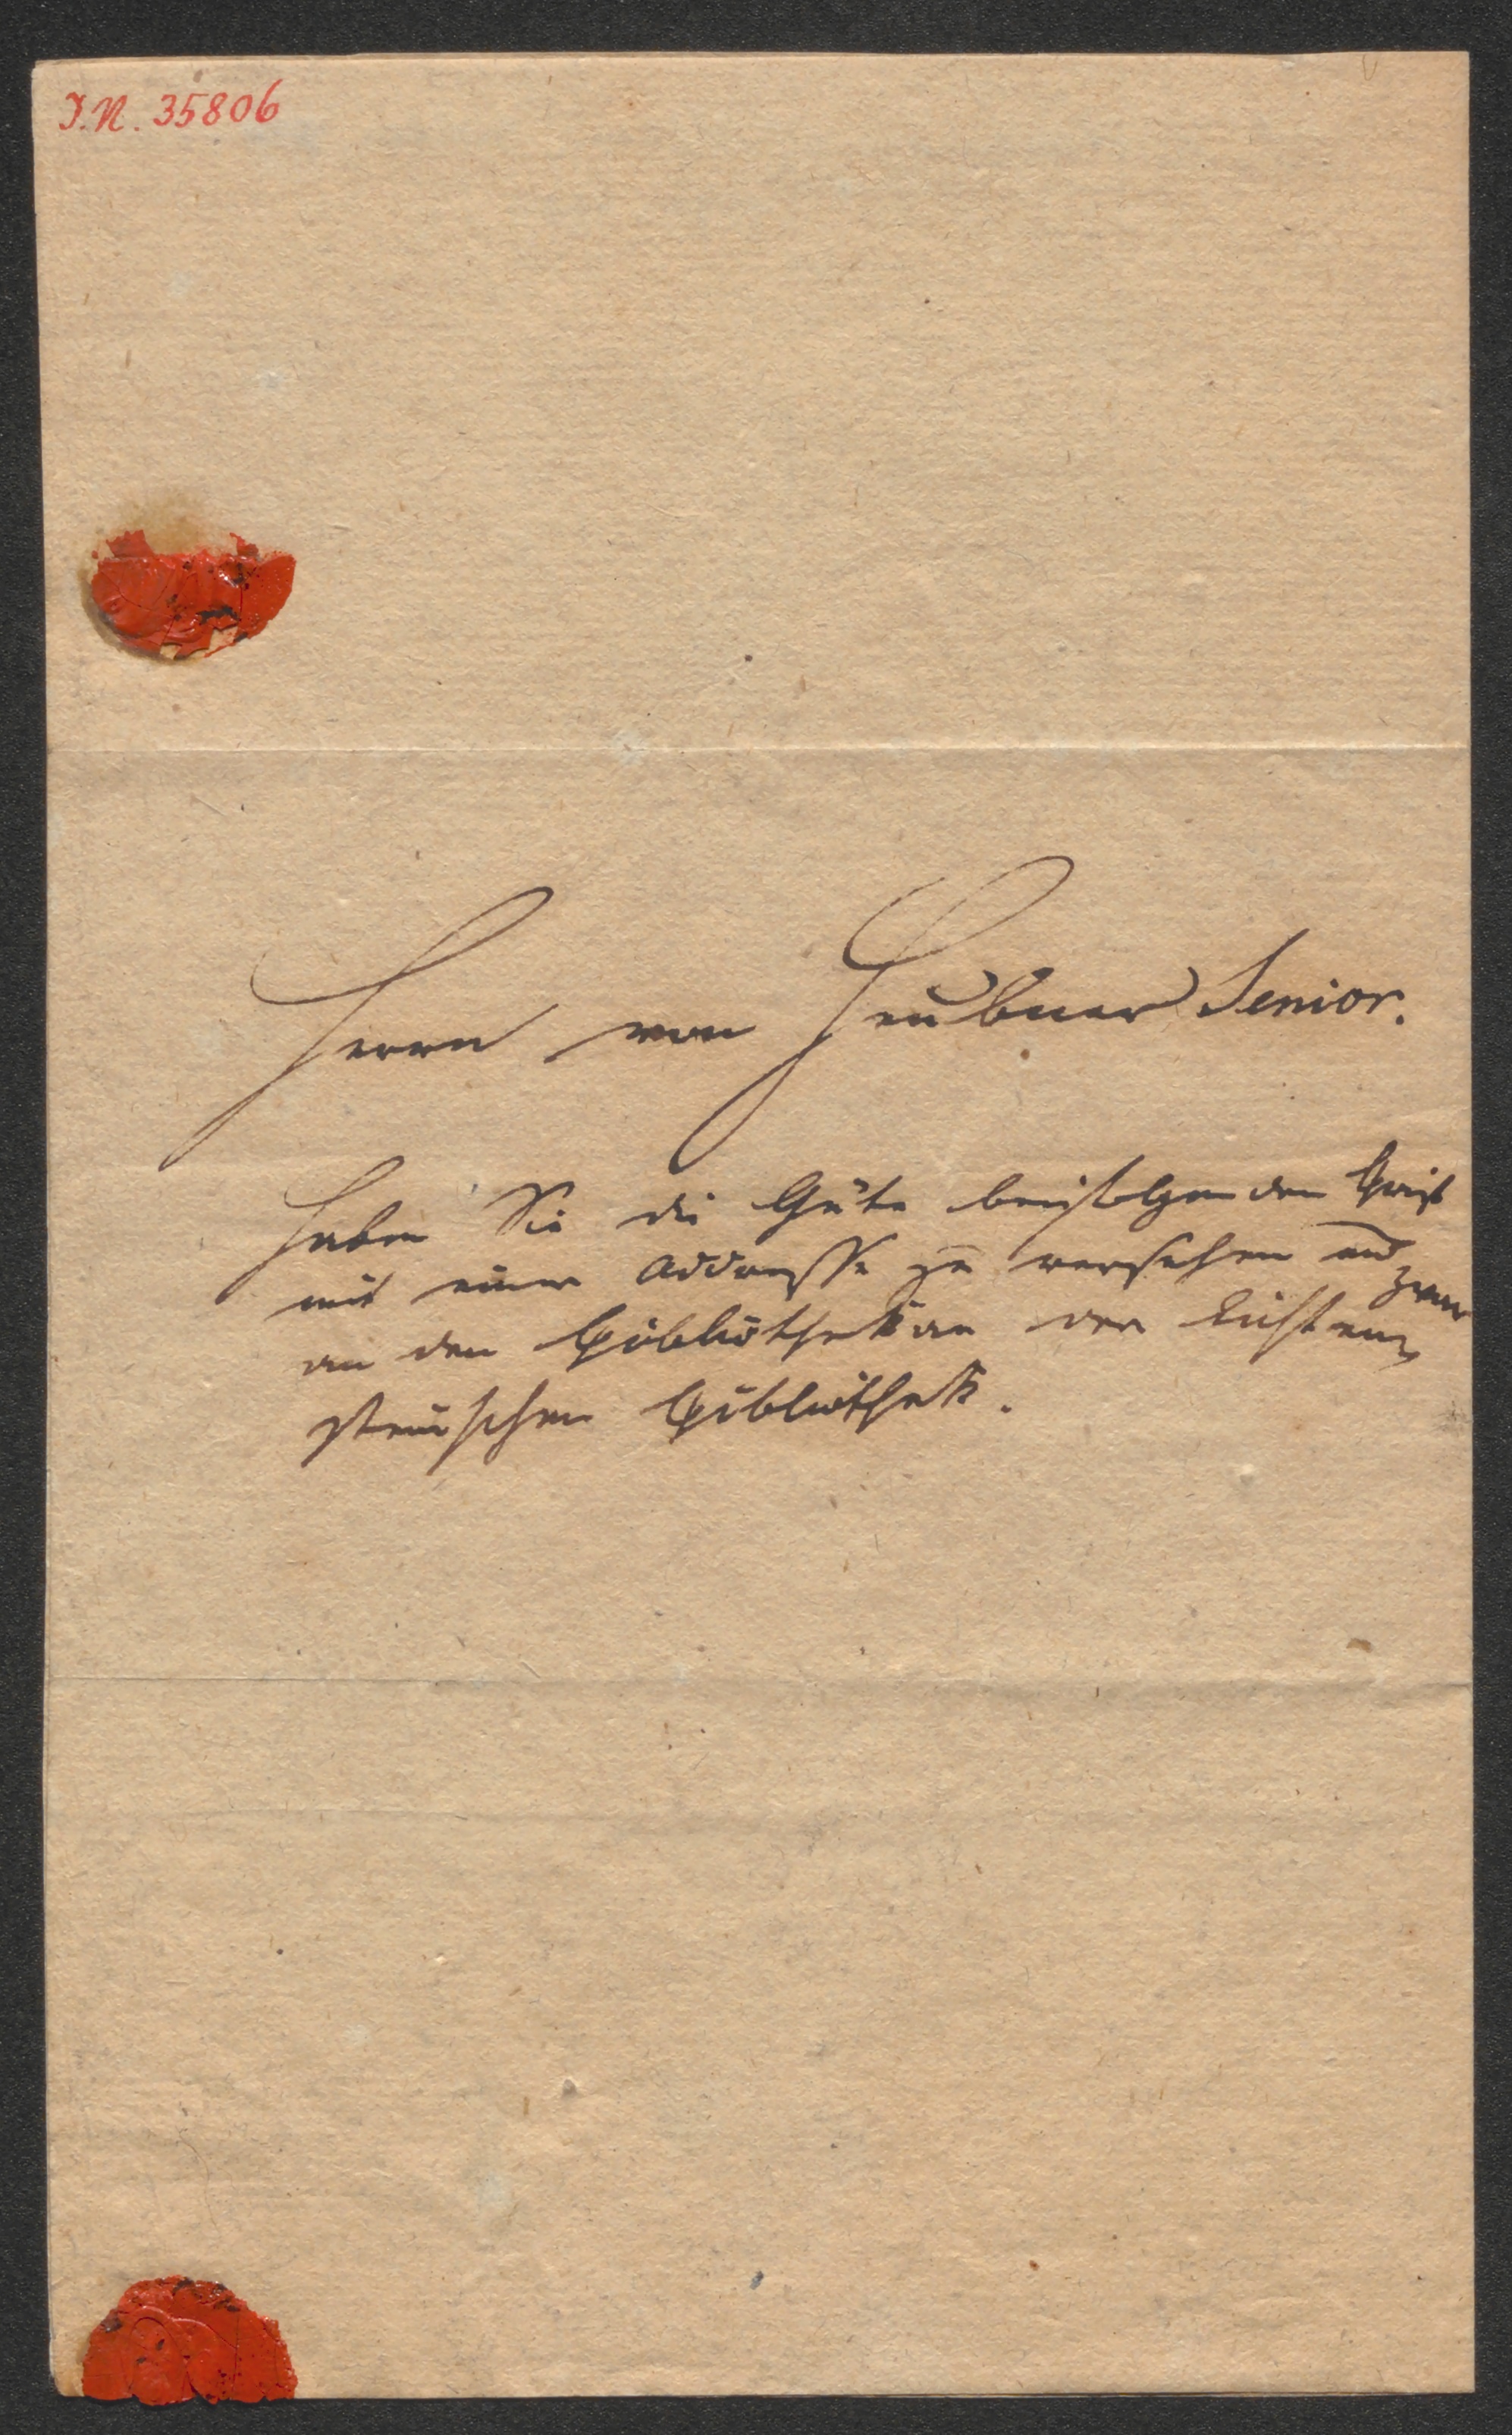 I.N. 35806
Herrn von Heubner Senior.
Haben Sie die Güte beifolgenden Brief
mit einer Addresse zu versehen und zwar
an den Bibliothekar der Lichten-
steinschen Bibliothek.